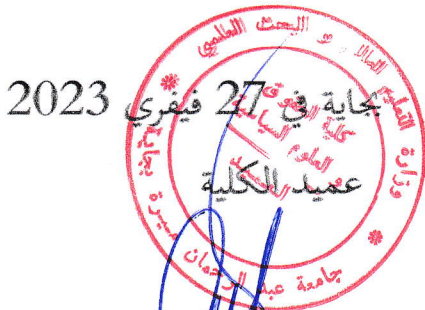 بجاية في 27 فيفري 2023
عميد الكلية
وزارة التعليم العالي و البحث العلمي
جامعة عبد الرحمان ميرة بجاية
كلية الحقوق
و العلوم السياسية
العميد